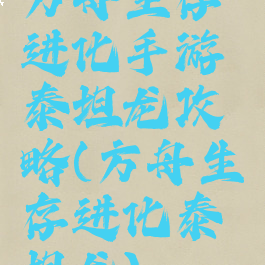 方舟生存
进化手游
泰坦龙攻
略(方舟生
存进化泰
坦龙)